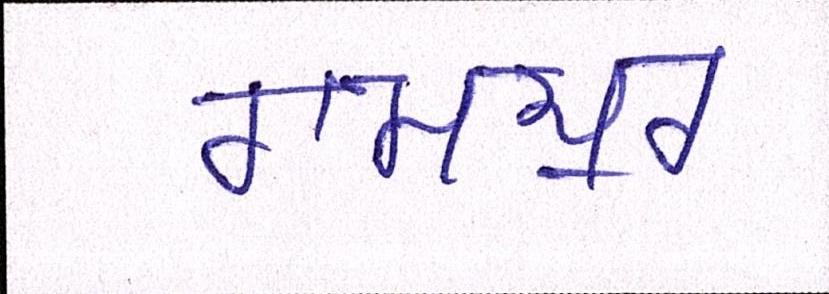 ਰਾਮਪੁਰ